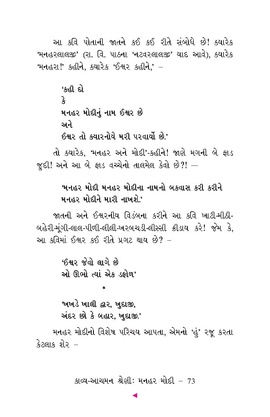 આ કવિ પોતાની જાતને કઈ કઈ રીતે સંબોધે છે! ક્યારેક
'મનહરલાલજી' (રા. વિ. પાઠના 'નટવરલાલજી' યાદ આવે), ક્યારેક
'મનહરા!' કહીને, ક્યારેક 'ઈશ્વર કહીને,' –
'કહી દો
કે
મનહર મોદીનું નામ ઈશ્વર છે
અને
ઈશ્વર તો ક્યારનોયે મરી પરવાર્યો છે.'
તો ક્યારેક, 'મનહર અને મોદી'-કહીને! જાણે મગની બે ફાડ
જૂદી! અને આ બે ફાડ વચ્ચેનો તાલમેલ કેવો છે?! —
'મનહર મોદી મનહર મોદીના નામનો બકવાસ કરી કરીને
મનહર મોદીને મારી નાખશે.'
જાતની અને ઈશ્વરનીય વિડંબના કરીને આ કવિ ખાટી-મીઠી-
બહેરી-મૂંગી-લાલ-પીળી-લીલી-ખરબચડી-લીસ્સી ક્રીડાય કરે! જેમ કે,
આ કવિમાં ઈશ્વર કઈ રીતે પ્રગટ થાય છે? –
'ઈશ્વર જેવો લાગે છે
ઓ ઊભો ત્યાં એક ડફોળ'
*
'ખખડે ખાલી દ્વાર, ખુદાજી,
અંદર છો કે બહાર, ખુદાજી.'
મનહર મોદીનો વિશેષ પરિચય આપતા, એમનો 'હું' રજૂ કરતા
કેટલાક શેર –
કાવ્ય-આચમન શ્રેણી: મનહર મોદી – 73